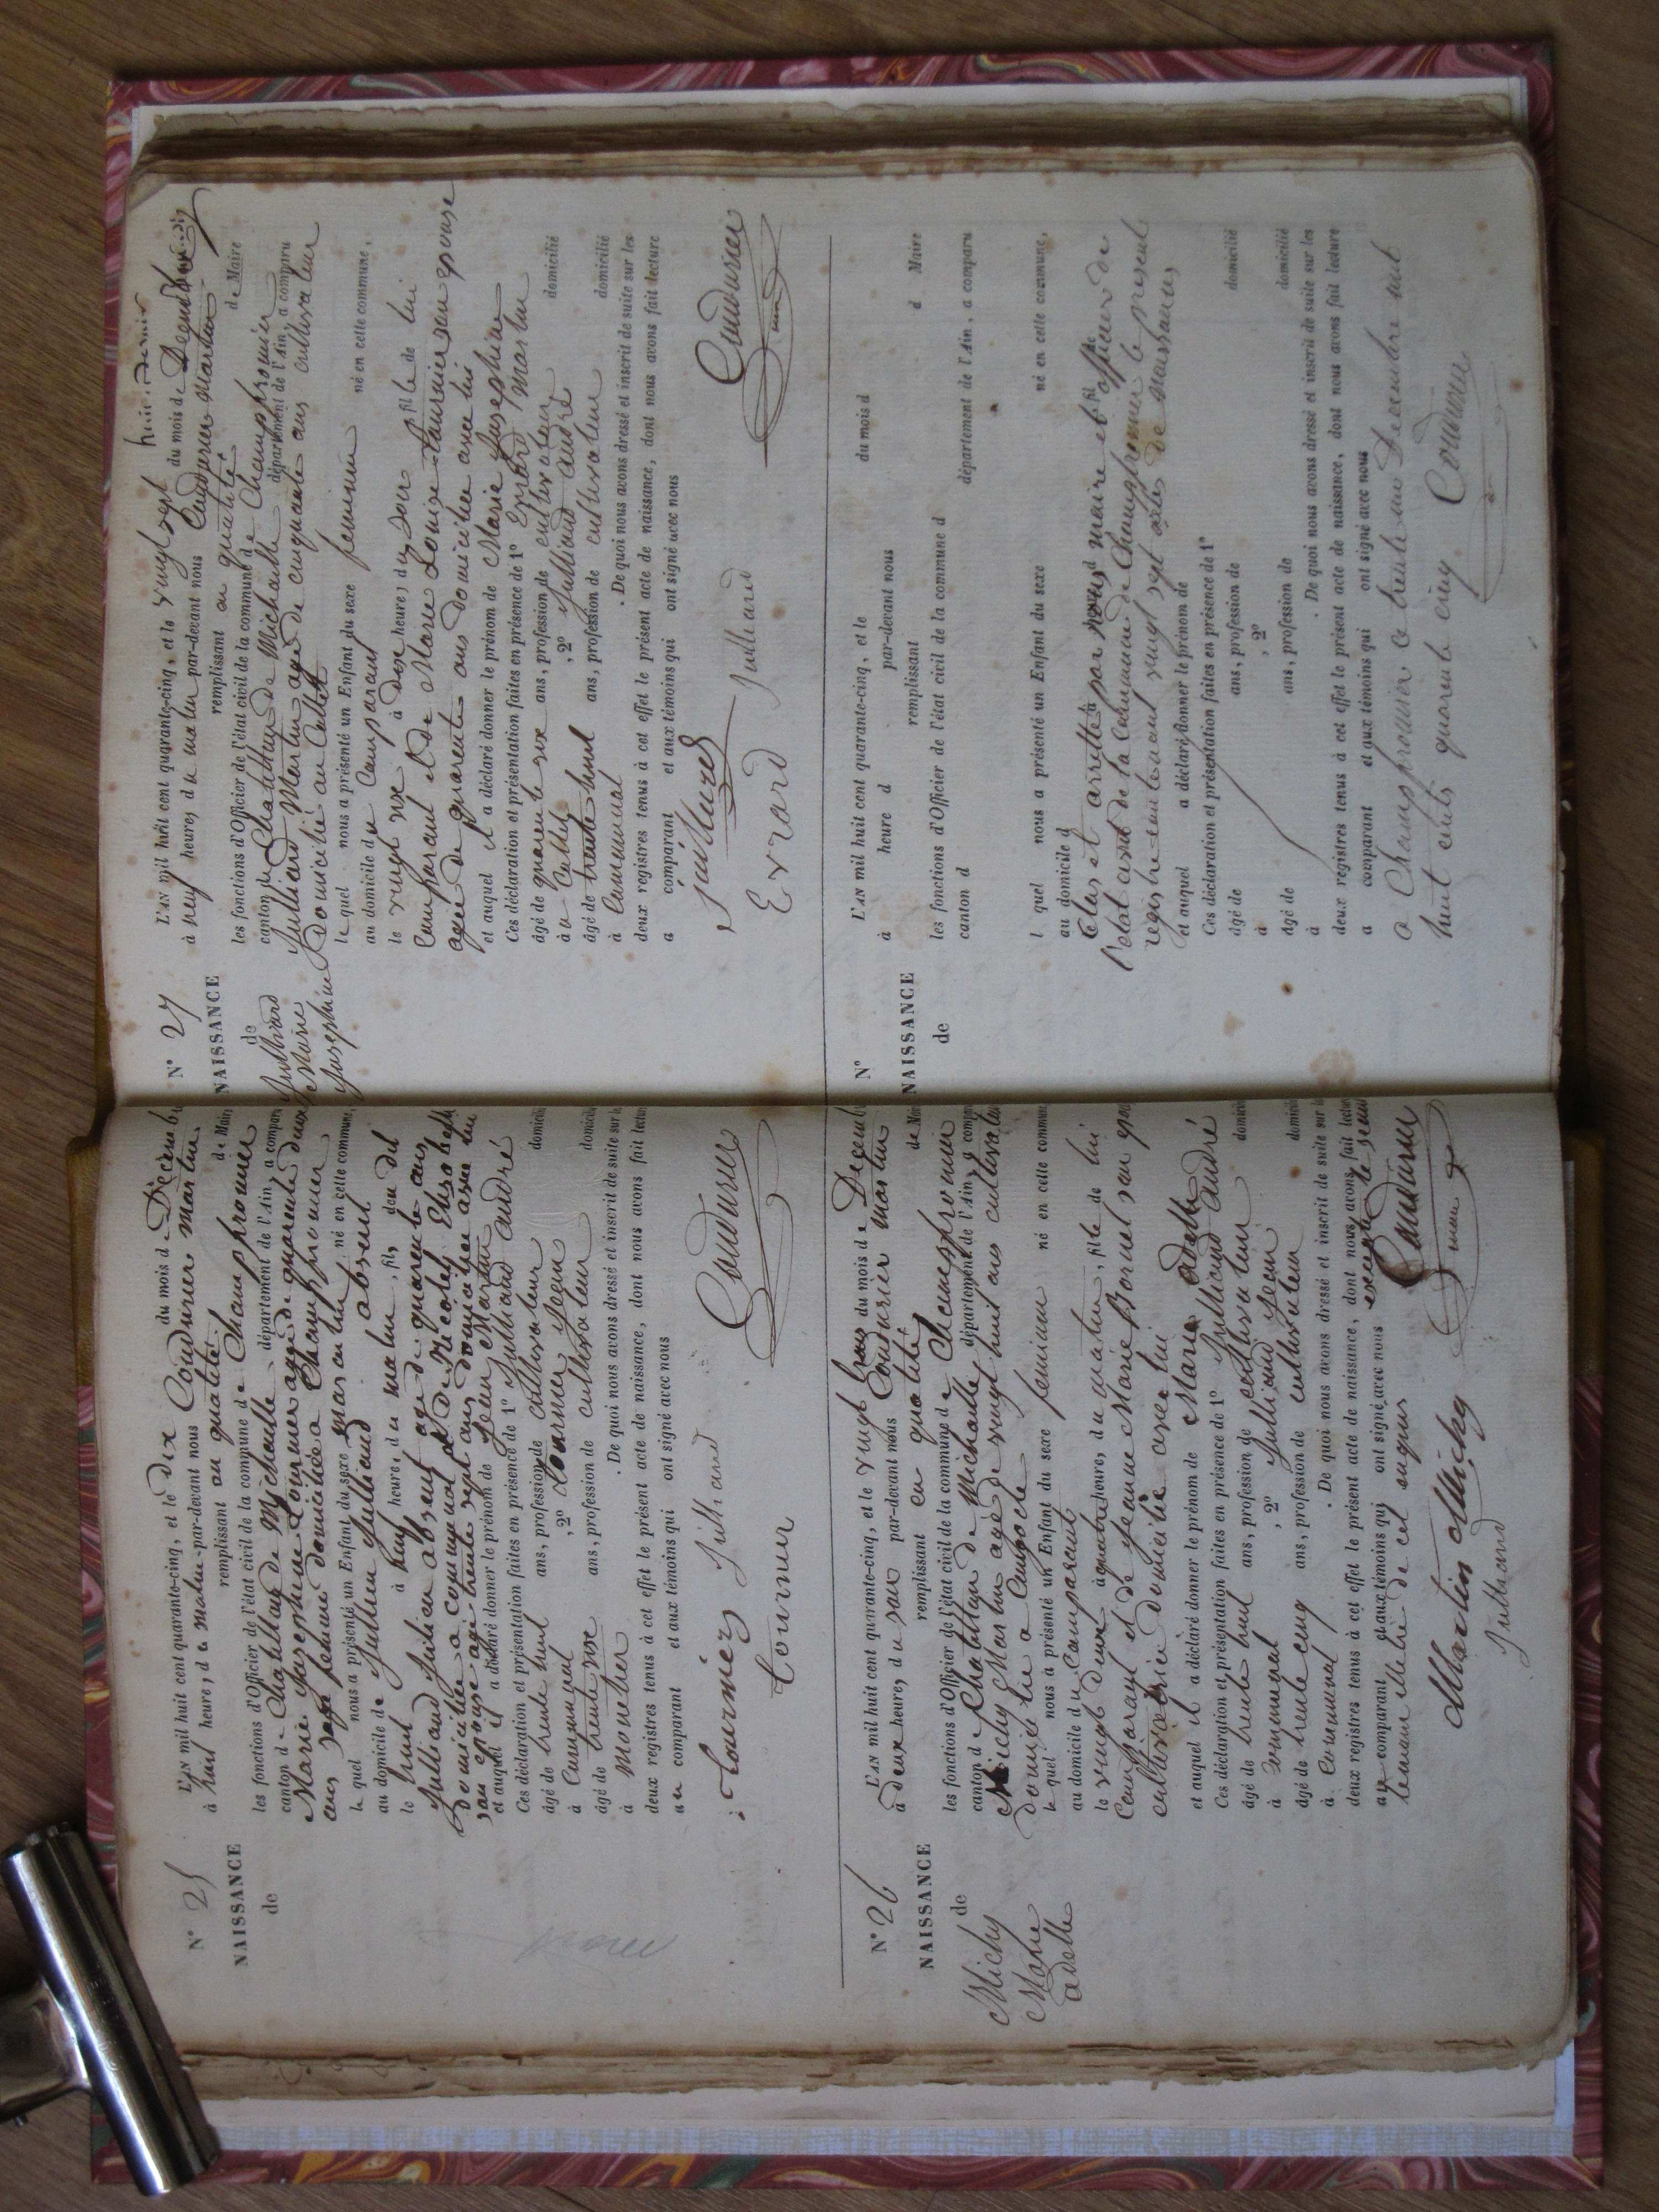 N° 25
NAISSANCE
de
L'AN mil huit cent quarante-cinq, et le dix du mois de Décembre
à huit heure, du matin par-devant nous Coudurier martin
remplissant en qualité de Maire
les fonctions d'Officier de l'état civil de la commune de Champfromier
canton de Chatillon de Michaille département de l'Ain, a comparu
Marie Josephine Tournier agée de quarante deux
ans sage femme domiciliée a Champfromier
laquel nous a présenté un Enfant du sexe masculin né en cette commune,
au domicile de Julien Julliand absent
le huit à neuf heure, du matin, fils de dit
Julliand Julien absent agé de quarante ans
domicilié a communal et de Nicolet Elisabeth
son épouse agée trente sept ans domiciliée avec lui
et auquel il a déclaré donner le prénom de Jean Martin
Ces déclaration et présentation faites en présence de 1° Julliand andré
âgé de trente huit ans, profession de cultivateur domicilié
à Communal , 2° Tournier Jean
âgé de trente six ans, profession de cultivateur domicilié
à Monetier . De quoi nous avons dressé et inscrit de suite sur les
deux registres tenus à cet effet le présent acte de naissance, dont nous avons fait lecture
au comparant et aux témoins qui ont signé avec nous
Tournier Julliand Coudurier
Tournier
N° 26
NAISSANCE
de
Michy
Marie
adelle
L'AN mil huit cent quarante-cinq, et le vingt trois du mois de Décembre
à deux heure, du soir par-devant nous Coudurier martin
remplissant en qualité de Maire
les fonctions d'Officier de l'état civil de la commune de Champfromier
canton de Chatillon de Michaille département de l'Ain, a comparu
Michy Martin agé de vingt huit ans cultivateur
domicilié a
lequel nous a présenté un Enfant du sexe feminin né en cette commune
au domicile du Comparent
le vingt deux à quatre heures, du matin, fille de lui
Comparant et de Jeanne Marie Bornet son épouse
cultivatrice domiciliée avec lui
et auquel il a déclaré donner le prénom de Marie adelle
Ces déclaration et présentation faites en présence de 1° Julliand andré
âgé de trente huit ans, profession de cultivateur domicilié
à communal , 2° Julliand Jean
âgé de trente cinq ans, profession de cultivateur domicilié
à Communal . De quoi nous avons dressé et inscrit de suite sur les
deux registres tenus à cet effet le présent acte de naissance, dont nous avons fait lecture
au comparant et aux témoins qui ont signé avec nous excepté le second
temoin illitré de cet enquis
Martin Michy Coudurier
Julliand
N° 27
NAISSANCE
de
Julliard
Marie
Josephine
L'AN mil huit cent quarante-cinq, et le vingt sept du mois de Décembre
à neuf heure, du matin par-devant nous Coudurier Martin
remplissant en qualité de Maire
les fonctions d'Officier de l'état civil de la commune de Champfromier
canton de Chatillon de Michaille département de l'Ain, a comparu
Julliard Martin agé de cinquante ans cultivateur
Domicilié au Collet
lequel nous a présenté un Enfant du sexe feminin né en cette commune,
au domicile du Comparant
le vingt six à dix heure, du soir, fille de lui
Comparant et de Marie Louise Tournier son epouse
agée de quarante ans domiciliée avec lui
et auquel il a déclaré donner le prénom de Marie Josephine
Ces déclaration et présentation faites en présence de 1° Evrard Martin
âgé de quarente six ans, profession de cultivateur domicilié
à Collet , 2° Julliand andré
âgé de trente huit ans, profession de cultivateur domicilié
à Communal . De quoi nous avons dressé et inscrit de suite sur les
deux registres tenus à cet effet le présent acte de naissance, dont nous avons fait lecture
a comparant et aux témoins qui ont signé avec nous
Julliard Coudurier
Evrard
N°
NAISSANCE
de
L'AN mil huit cent quarante-cinq, et le du mois d
à heure d par-devant nous
remplissant d Maire
les fonctions d'Officier de l'état civil de la commune d
canton d département de l'Ain, a comparu
l quel nous a présenté un Enfant du sexe né en cette commune,
au domicile d
Clos et arretté par nous maire et officier de
l'etat civil de la Commune de Champfromier le present
registre contenant vingt sept actes de naissances
et auquel a déclaré donner le prénom de
Ces déclaration et présentation faites en présence de 1°
âgé de ans, profession de domicilié
à , 2°
âgé de ans, profession de domicilié
à . De quoi nous avons dressé et inscrit de suite sur les
deux registres tenus à cet effet le présent acte de naissance, dont nous avons fait lecture
a comparant et aux témoins qui ont signé avec nous
a Champfromier ce trente un Decembre mil
huit cents quarente cinq Coudurier